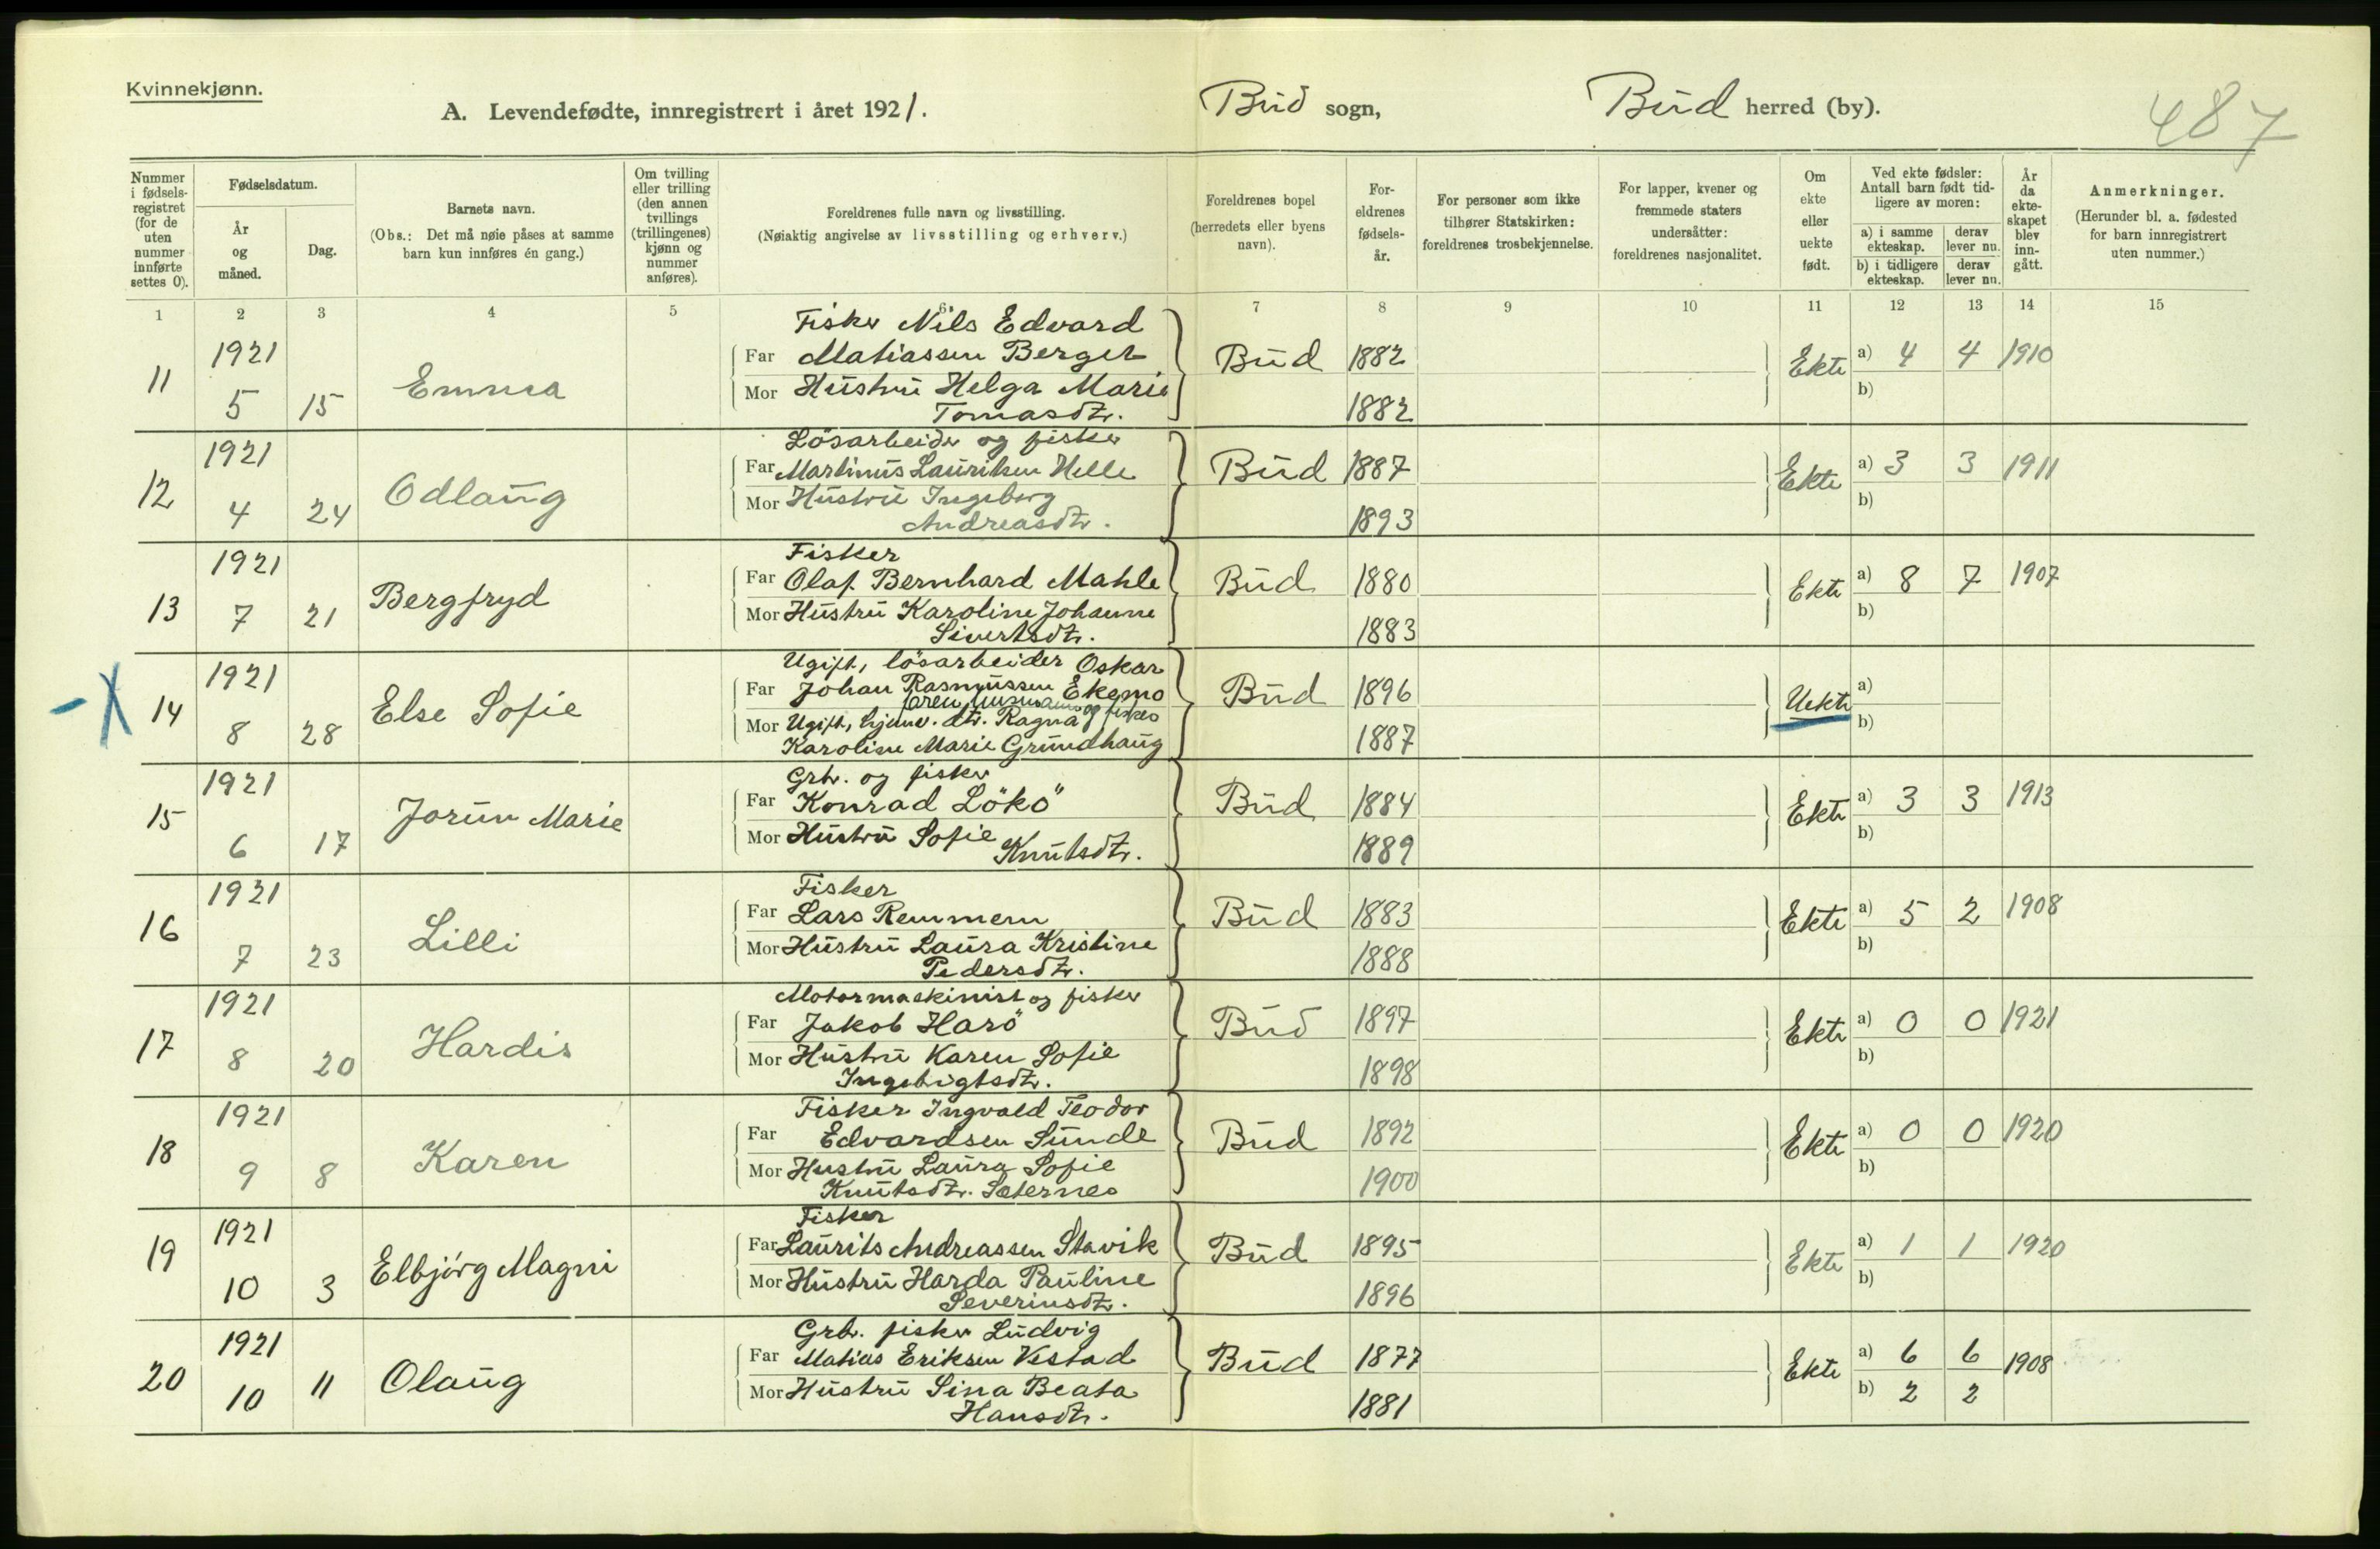 Kvinnekjønn.
A. Levendefødte, innregistrert i året 1921. Bud sogn, Bud herred (by). 487
Nummer i fødsels-registret (for de uten nummer innførte settes 0).
Fødselsdatum.
År og måned.
Dag.
Barnets navn.
(Obs.: Det må nøie påses at samme barn kun innføres én gang.)
Om tvilling eller trilling (den annen tvillings (trillingenes) kjønn og nummer anføres).
Foreldrenes fulle navn og livsstilling.
(Nøiaktig angivelse av livsstilling og erhverv.)
Foreldrenes bopel (herredets eller byens navn).
For-eldrenes fødsels-år.
For personer som ikke tilhører Statskirken: foreldrenes trosbekjennelse.
For lapper, kvener og fremmede staters undersåtter: foreldrenes nasjonalitet.
Om ekte eller uekte født.
Ved ekte fødsler: Antall barn født tid-ligere av moren:
a) i samme ekteskap.
derav lever nu.
b) i tidligere ekteskap.
derav lever nu.
År da ekte-skapet blev inn-gått.
Anmerkninger.
(Herunder bl. a. fødested for barn innregistrert uten nummer.)
1 2 3 4 5 6 7 8 9 10 11 12 13 14 15
11 1921 5 15 Emma
Fisker Nils Edvard
Far Matiassen Berget Bud 1882
Mor Hustru Helga Marie
Tomasdtr. 1882
Ekte a) 4 4 1910
b)
12 1921 4 24 Odlaug
Lösarbeider og fisker
Far Martinus Lauritsen Helle Bud 1887
Mor Hustru Ingeborg
Andreasdtr. 1893
Ekte a) 3 3 1911
b)
13 1921 7 21 Bergfryd
Fisker
Far Olaf Bernhard Mahle Bud 1880
Mor Hustru Karoline Johanne
Sivertsdtr. 1883
Ekte a) 8 7 1907
b)
14 1921 8 28 Else Sofie
Ugift, lösarbeider Oskar
Far Johan Rasmussen Ekemo Bud 1896
og fisker
Mor Ugift, hjemv. dtr. Ragna
Karoline Marie Grundhaug 1887
Uekte a)
b)
15 1921 6 17 Jorun Marie
Grbr. og fisker
Far Konrad Lökö Bud 1884
Mor Hustru Sofie
Knutsdtr. 1889
Ekte a) 3 3 1913
b)
16 1921 7 23 Lilli
Fisker
Far Lars Remmem Bud 1883
Mor Hustru Laura Kristine
Pedersdtr. 1888
Ekte a) 5 2 1908
b)
17 1921 8 20 Hardis
Motormaskinist og fisker
Far Jakob Harö Bud 1897
Mor Hustru Karen Sofie
Ingebrigtsdtr. 1898
Ekte a) 0 0 1921
b)
18 1921 9 8 Karen
Fisker Ingvald Teodor
Far Edvardsen Sunde Bud 1892
Mor Hustru Laura Sofie
Knutsdtr. Sæternes 1900
Ekte a) 0 0 1920
b)
19 1921 10 3 Elbjörg Magni
Fisker
Far Laurits Andreassen Stavik Bud 1895
Mor Hustru Harda Pauline
Severinsdtr. 1896
Ekte a) 1 1 1920
b)
20 1921 10 11 Olaug
Grbr. fisker Ludvig
Far Matias Eriksen Vestad Bud 1877
Mor Hustru Sina Beata
Hansdtr. 1881
Ekte a) 6 6 1908
b) 2 2